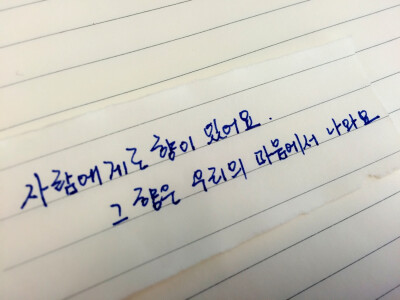 사람에게도 향이 있어요.
그 향은 우리의 마음에서 나와요